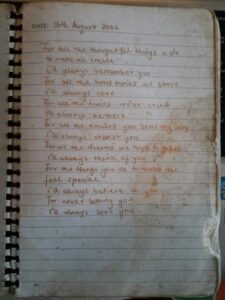 DATE: 16th August 2006
For all the thoughtful things u do
to make me smile
I'll always remember you
For all the hard times we share
I'll always care
For all the times we've cried
I'll always be there
For all the smiles you send my way
I'll always cherish you
For all the dreams we hope to
I'll always think of you
For the things you do to make me
feel special
I'll always believe in you
For never letting go
I'll always love you